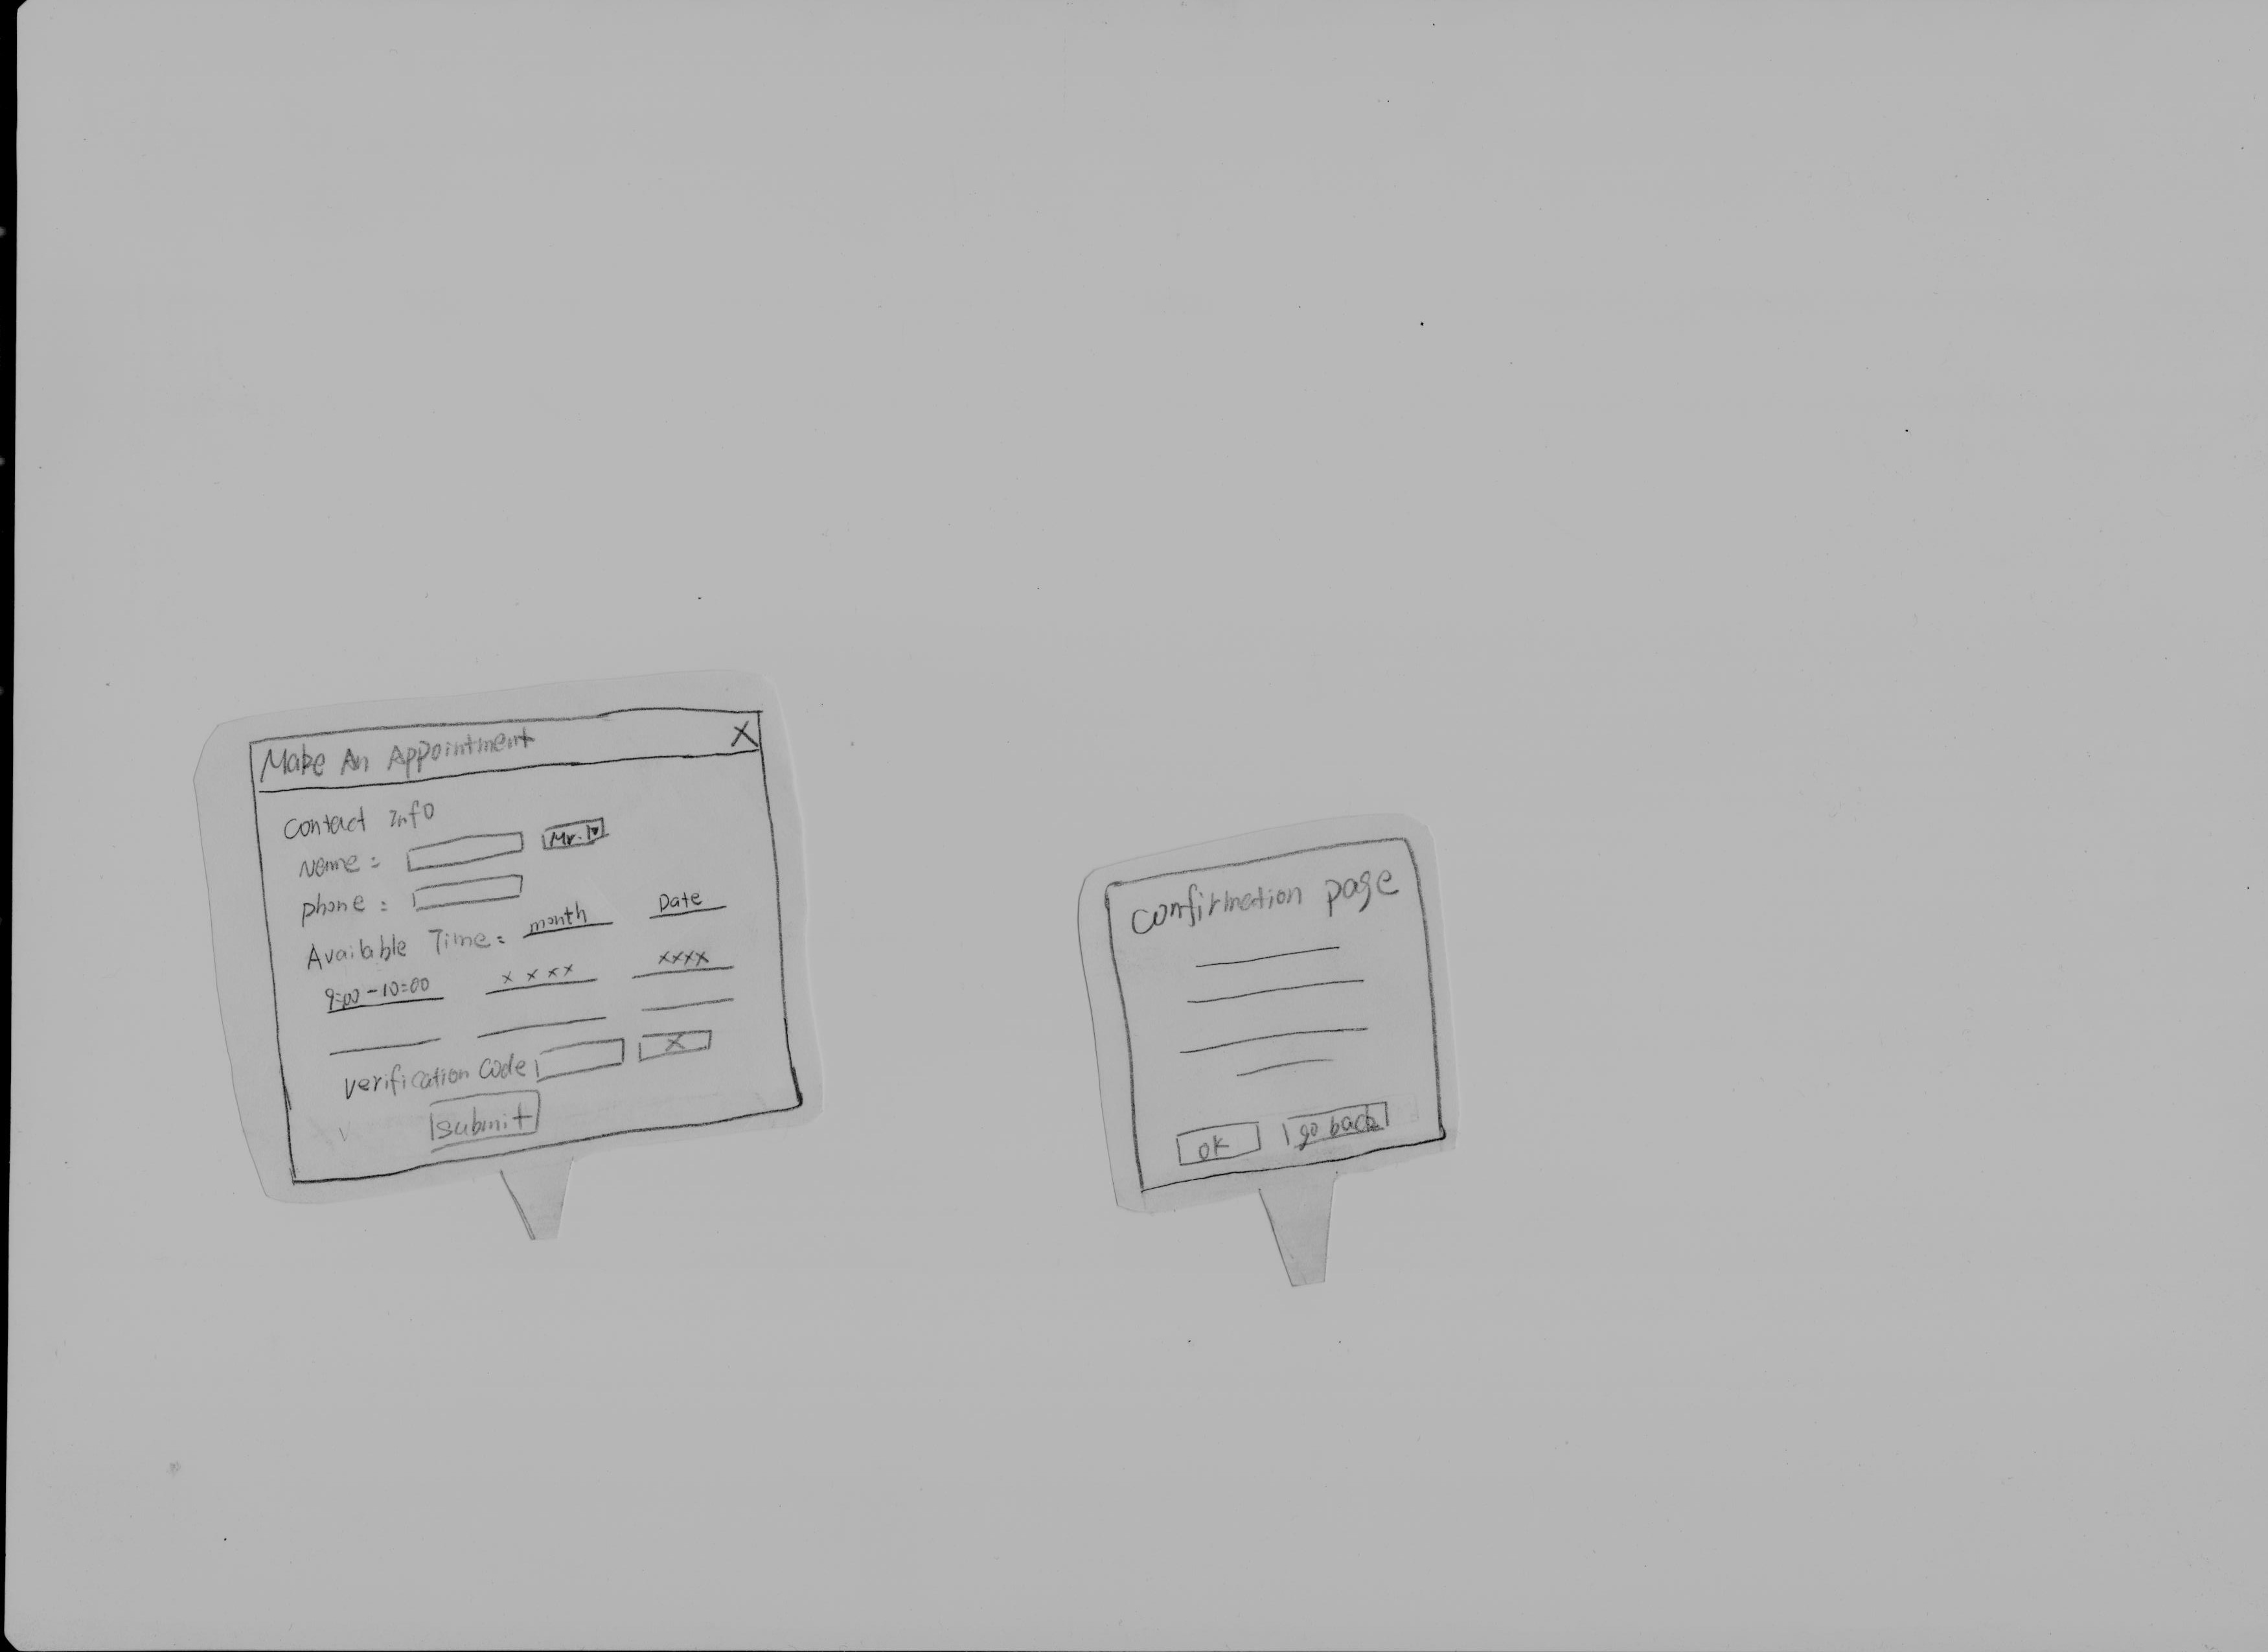 Make An Appointment X
Contact Info
Name :
Mr.
phone :
Available Time : month Date
9:00 - 10:00 x x x x xxxx
Verification Code X
Submit
Confirmation page
OK go back